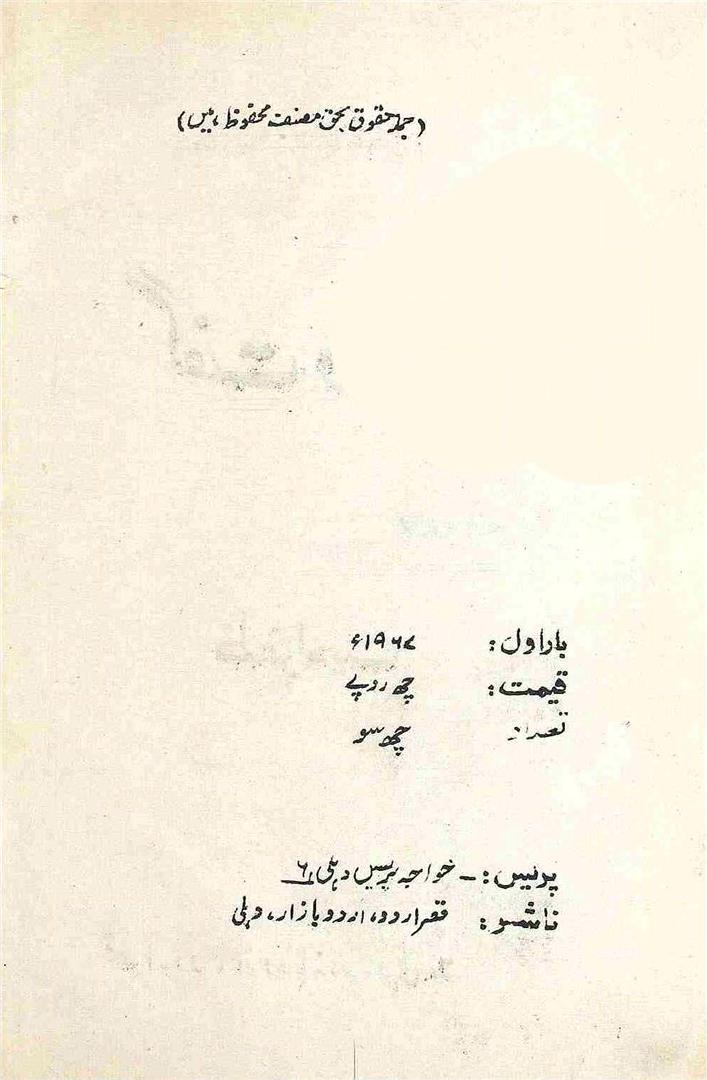 (جملہ حقوق بحق مصنف محفوظ ہیں)
بار اول: ۱۹۶۷ء
قیمت: چھ روپے
تعداد چھ سو
پریس:۔ خواجہ پریس دہلی ۶
ناشر: قصر اردو، اردو بازار، دہلی